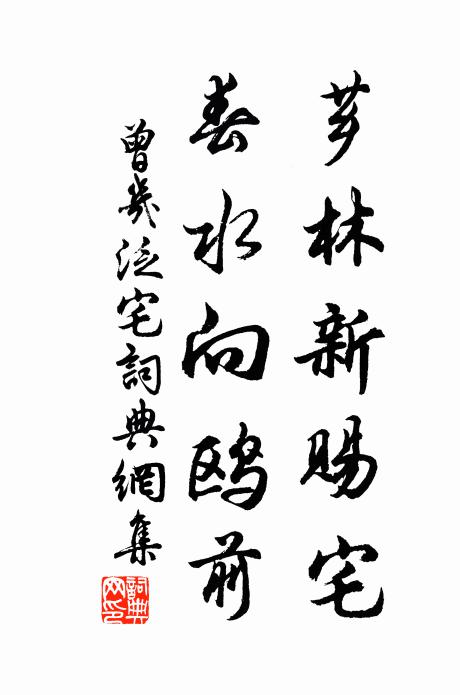 芗林新賜宅
春水向鷗前
曾幾泛宅詞典網集
詞典网印